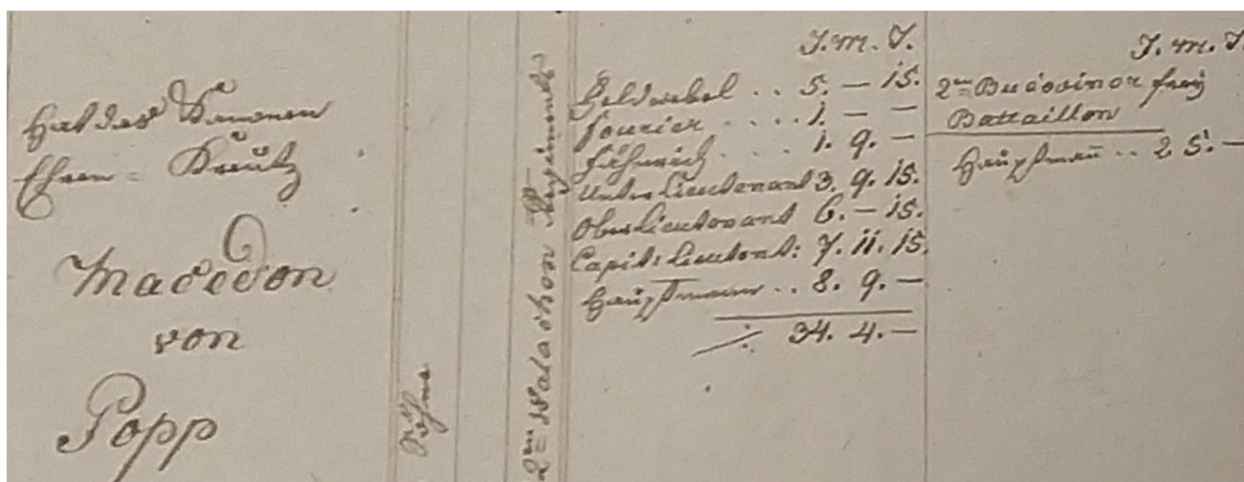 Hat das Kanonen
Ehren = Kreutz
Macedon
von
Popp
Söhne
2ten Walachen Regiments
J. M. T.
Feldwebel . . 5. — 15.
fourier . . . . 1. — —
Fähnrich . . . 1. 9. —
Unter Lieutenant 3. 9. 15.
Ober Lieutenant 6. — 15.
Capit: Lieutent: 7. 11. 15.
Hauptmann . . 8. 9. —
34. 4. —
J. M. T.
2ten Bucoviner frey
Battaillon
Hauptmañ . . 2 5. —